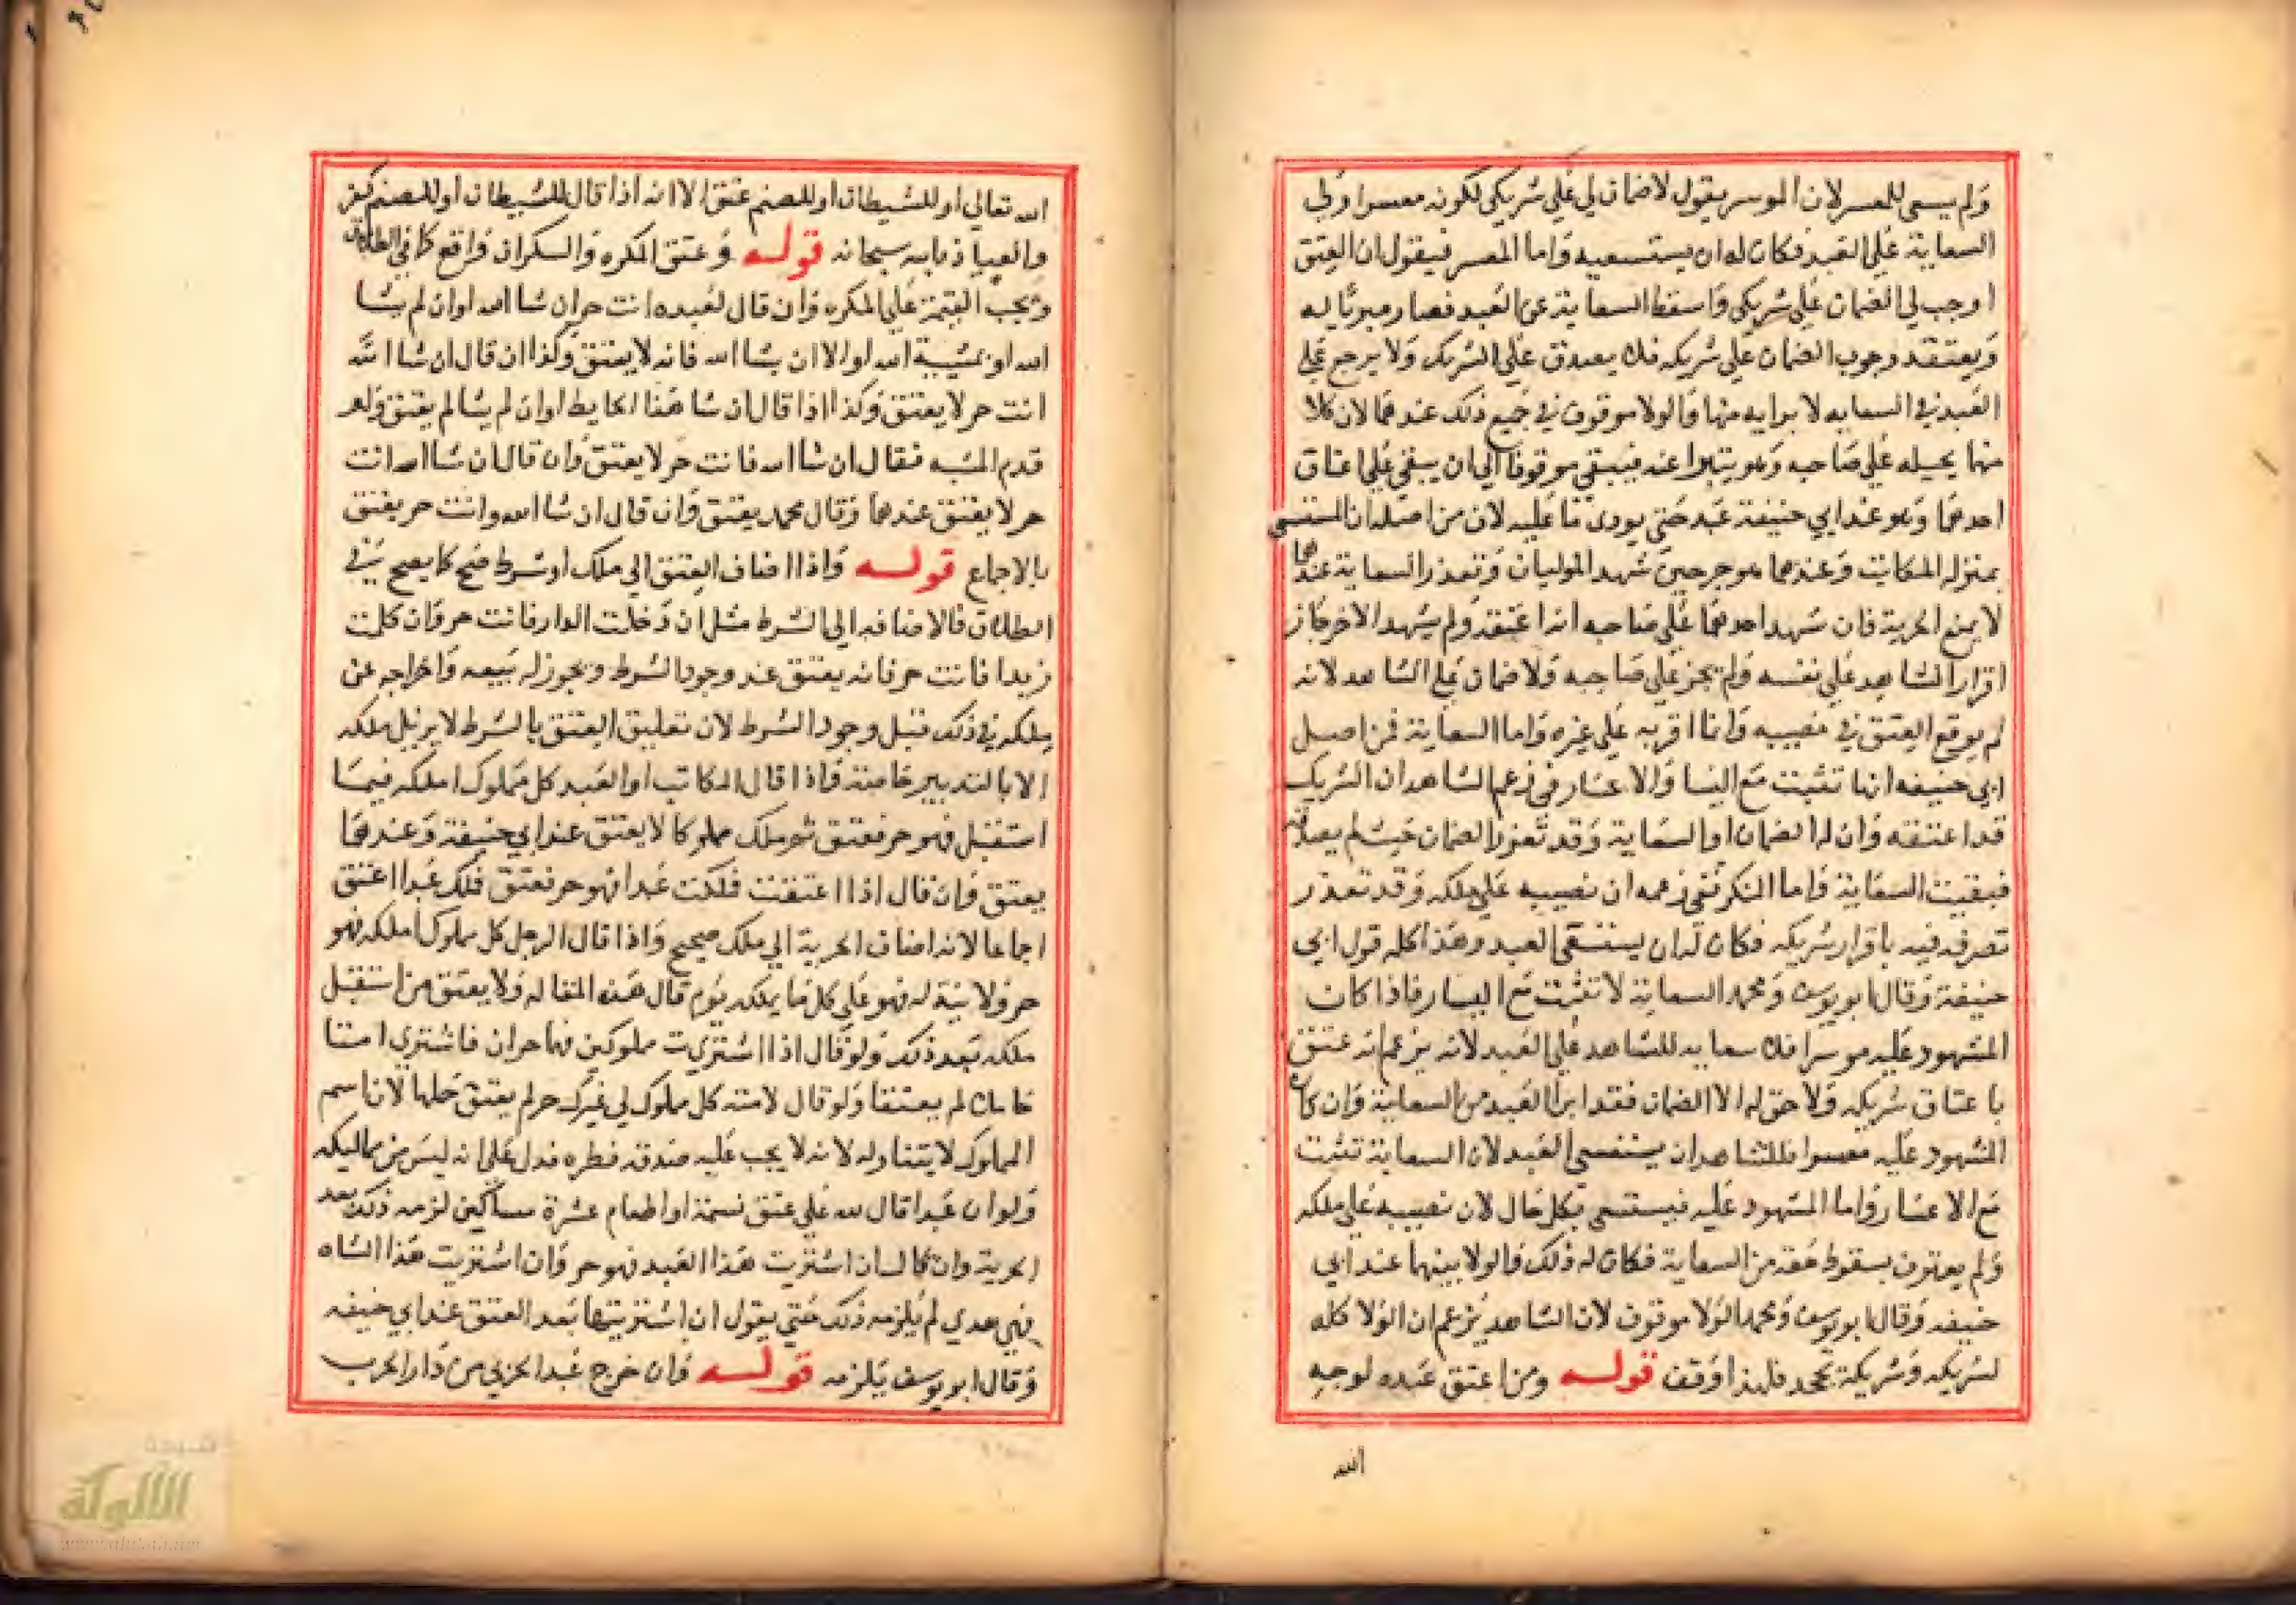 ولم يسعى للمعسر لان الموسر يقول لا ضمان لي على شريكي لكونه معسرا ولي
السعاية على العبد فكان له ان يستسعيه واما المعسر فيقول ان العتق
اوجب لي الضمان على شريكي واسقط السعاية عن العبد فصار مبريا له
ويعتقد وجوب الضمان على شريكه فلا يصدق على الشريك ولا يرجع على
العبد في السعايه لابرايه منها والولا موقوف في جميع ذلك عندهما لان كلا
منها يحيله على صاحبه وهو يتبرا عنه فيبقي موقوفا الي ان يتفق على اعتاق
احدهما وهو عند ابي حنيفة عبد حتي يودي ما عليه لان من اصله ان المستسعى
بمنزله المكاتب وعندهما هو حر حين شهد الموليان وتعذر السعاية عندهما
لا يمنع الحرية فان شهد احدهما على صاحبه انه اعتقه ولم يشهد الاخر جاز
اقرار الشاهد على نفسه ولم يجز على صاحبه ولا ضمان على الشاهد لانه
لم يوقع العتق في نصيبه وانما اقر به على غيره واما السعاية فمن اصل
ابي حنيفه انها تثبت مع اليسا والاعسار ففي زعم الشاهد ان الشريك
قد اعتقه وان له الضمان او السعاية وقد تعذر الضمان حيث لم يصدقه
فبقيت السعاية واما المنكر ففي زعمه ان نصيبه على ملكه وقد تعذر
تصرفه فيه باقرار شريكه فكان له ان يستسقى العبد وهذا كله قول ابي
حنيفة وقال ابو يوسف ومحمد السعاية لا تثبت مع اليسار فاذا كان
المشهود عليه موسرا فلا سعايه للشاهد على العبد لانه يزعم انه عتق
باعتاق شريكه ولا حق له الا الضمان فقد ابرا العبد من السعاية وان كان
المشهود عليه معسرا فللشاهد ان يستسعي العبد لان السعاية تثبت
مع الاعسار واما المشهود عليه فيستسعى بكل حال لان نصيبه على ملكه
ولم يعترف بسقوط حقه من السعاية فكان له ذلك والولا بينهما عند ابي
حنيفه وقال ابو يوسف ومحمد الولا موقوف لان الشاهد يزعم ان الولا كله
لشريكه وشريكه يجحد فلهذا اوقف قوله ومن اعتق عبده لوجه
الله
الله تعالي او للشيطان او للصنم عتق الا انه اذا قال للشيطان او للصنم كفر
والعياذ بالله سبحانه قوله وعتق المكره والسكران واقع كما في الطلاق
وتجب القيمة على المكره وان قال لعبده انت حر ان شا الله او ان لم يشا
الله او بمشية الله او الا ان يشا الله فانه لا يعتق وكذا ان قال ان شا الله
انت حر لا يعتق وكذا اذا قال ان شا هذا الحايط او ان لم يشا لم يعتق ولو
قدم المشيه فقال ان شا الله فانت حر لا يعتق وان قال ان شا الله انت
حر لا يعتق عندهما وقال محمد يعتق وان قال ان شا الله وانت حر يعتق
بالاجماع قوله واذا اضاف العتق الي ملك او شرط صح كما يصح في
الطلاق فالاضافه الي الشرط مثل ان دخلت الدار فانت حر وان كلمت
زيدا فانت حر فانه يعتق عند وجود الشرط ويجوز له بيعه واخراجه عن
ملكه في ذلك قبل وجود الشرط لان تعليق العتق بالشرط لا يزيل ملكه
الا بالتدبير خاصة واذا قال المكاتب او العبد كل مملوك املكه فيما
استقبل فهو حر فعتق ثم ملك مملوكا لا يعتق عند ابي حنيفة وعندهما
يعتق وان قال اذا اعتقت فملكت عبدا فهو حر فعتق فملك عبدا اعتق
اجماعا لانه اضاف الحرية الي ملك صحيح واذا قال الرجل كل مملوك املكه فهو
حر ولا نية له فهو على كل ما يملكه يوم قال هذه المقاله ولا يعتق من استقبل
ملكه بعد ذلك ولو قال اذا اشتريت مملوكين فهما حران فاشتري امتا
حاملا لم يعتقا ولو قال لامته كل مملوك لي غيرك حر لم يعتق حملها لان اسم
المملوك لا يتناوله لانه لا يجب عليه صدقه فطره فدل على انه ليس من مماليكه
ولو ان عبدا قال لله علي عتق نسمة او اطعام عشرة مساكين لزمه ذلك بعد
الحرية وان قال ان اشتريت هذا العبد فهو حر وان اشتريت هذا الشاه
فهي هدي لم يلزمه ذلك حتي يقول ان اشتريتها بعد العتق عند ابي حنيفه
وقال ابو يوسف يلزمه قوله وان خرج عبد الحربي من دار الحرب
شبكة
الألوكة
www.alukah.net